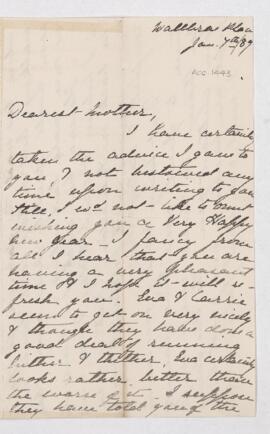 Jan. 7th/89
ACC 1443
Dearest Mother,
I have certainly
taken the advice I gave to
you, & not bestowed any
time upon writing to you
Still, I wd not like to omit
wishing you a Very Happy
New Year. I fancy from
all I hear that you are
having a very pleasant
time & I hope it will re-
fresh you. Eva & Carrie
seem to get on very nicely
& though they have done a
good deal of running
hither & thither, Eva certainly
looks rather better than
the worse for it. I suppose
they have told you of the